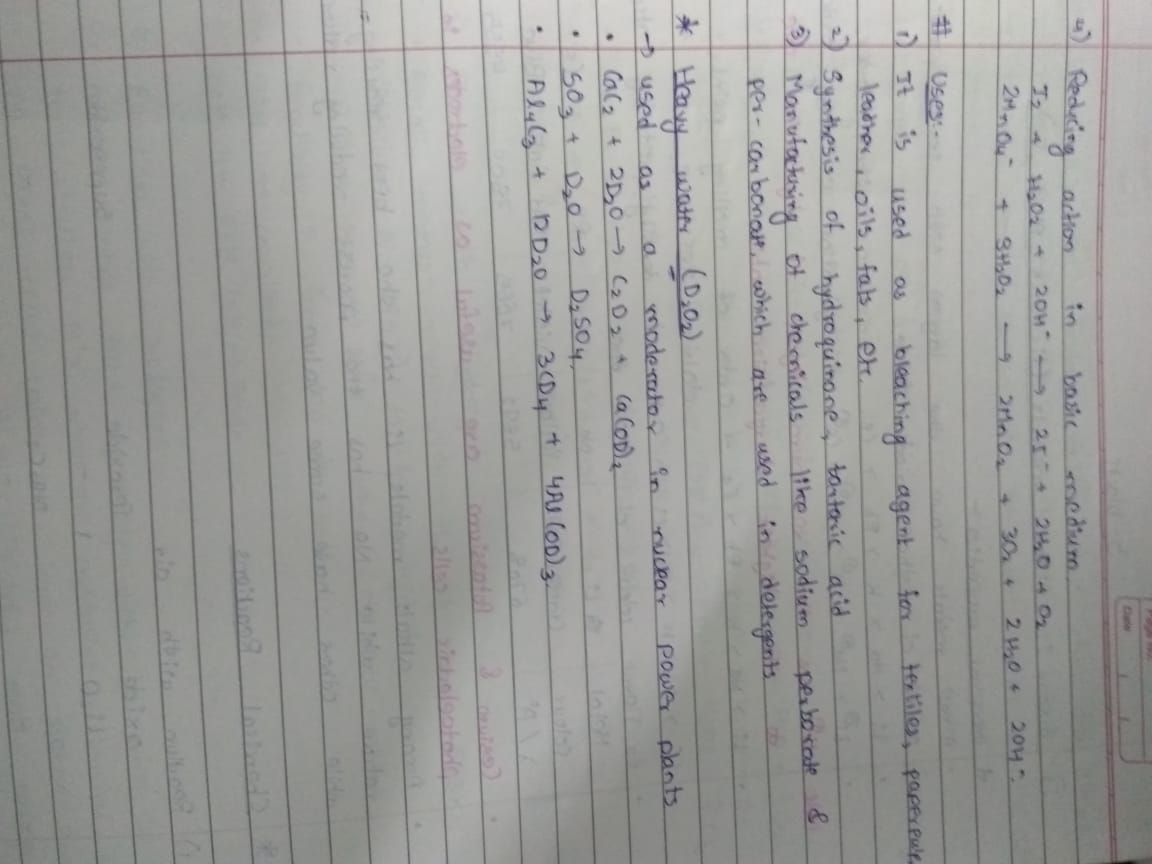 4) Reducing action in basic medium
I₂ + H₂O₂ + 2OH⁻ → 2I⁻ + 2H₂O + O₂
2MnO₄⁻ + 3H₂O₂ → 2MnO₂ + 3O₂ + 2H₂O + 2OH⁻.
# Uses:-
1) It is used as bleaching agent for textiles,
leather, oils, fats, etc.
2) Synthesis of hydroquinone, tartaric acid
3) Manufacturing of chemicals like sodium perborate &
per-carbonate, which are used in detergents
* Heavy water - (D₂O₂)
→ used as a moderator in nuclear power plants
• CaC₂ + 2D₂O → C₂D₂ + Ca(OD)₂
• SO₃ + D₂O → D₂SO₄
• Al₄C₃ + 12D₂O → 3CD₄ + 4Al(OD)₃.
Date